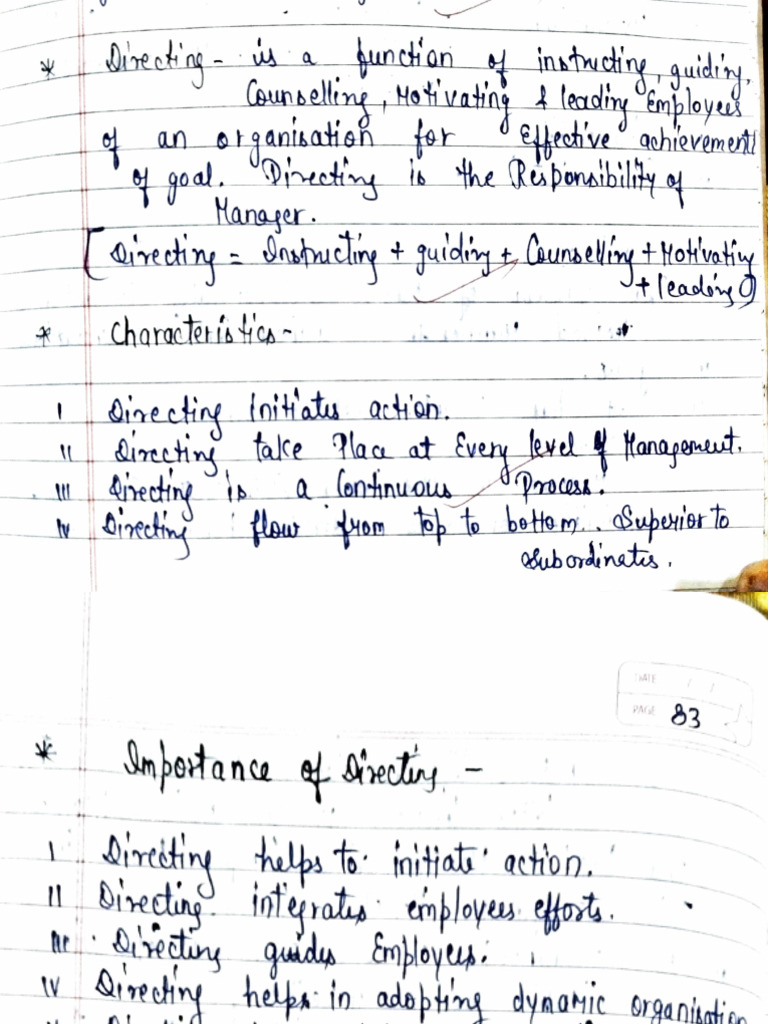 * Directing - is a function of instructing, guiding,
Counselling, Motivating & leading Employees
of an organisation for Effective achievement
of goal. Directing is the Responsibility of
Manager.
[Directing = Instructing + guiding + Counselling + Motivating
+ leading]
* Characteristics -
I Directing Initiates action.
II Directing take Place at Every level of Management.
III Directing is a Continuous Process.
IV Directing flow from top to bottom. Superior to
Subordinates.
DATE / /
PAGE 83
* Importance of Directing -
I Directing helps to initiate action.
II Directing integrates employees efforts.
III Directing guides Employees.
IV Directing helps in adopting dynamic organisation